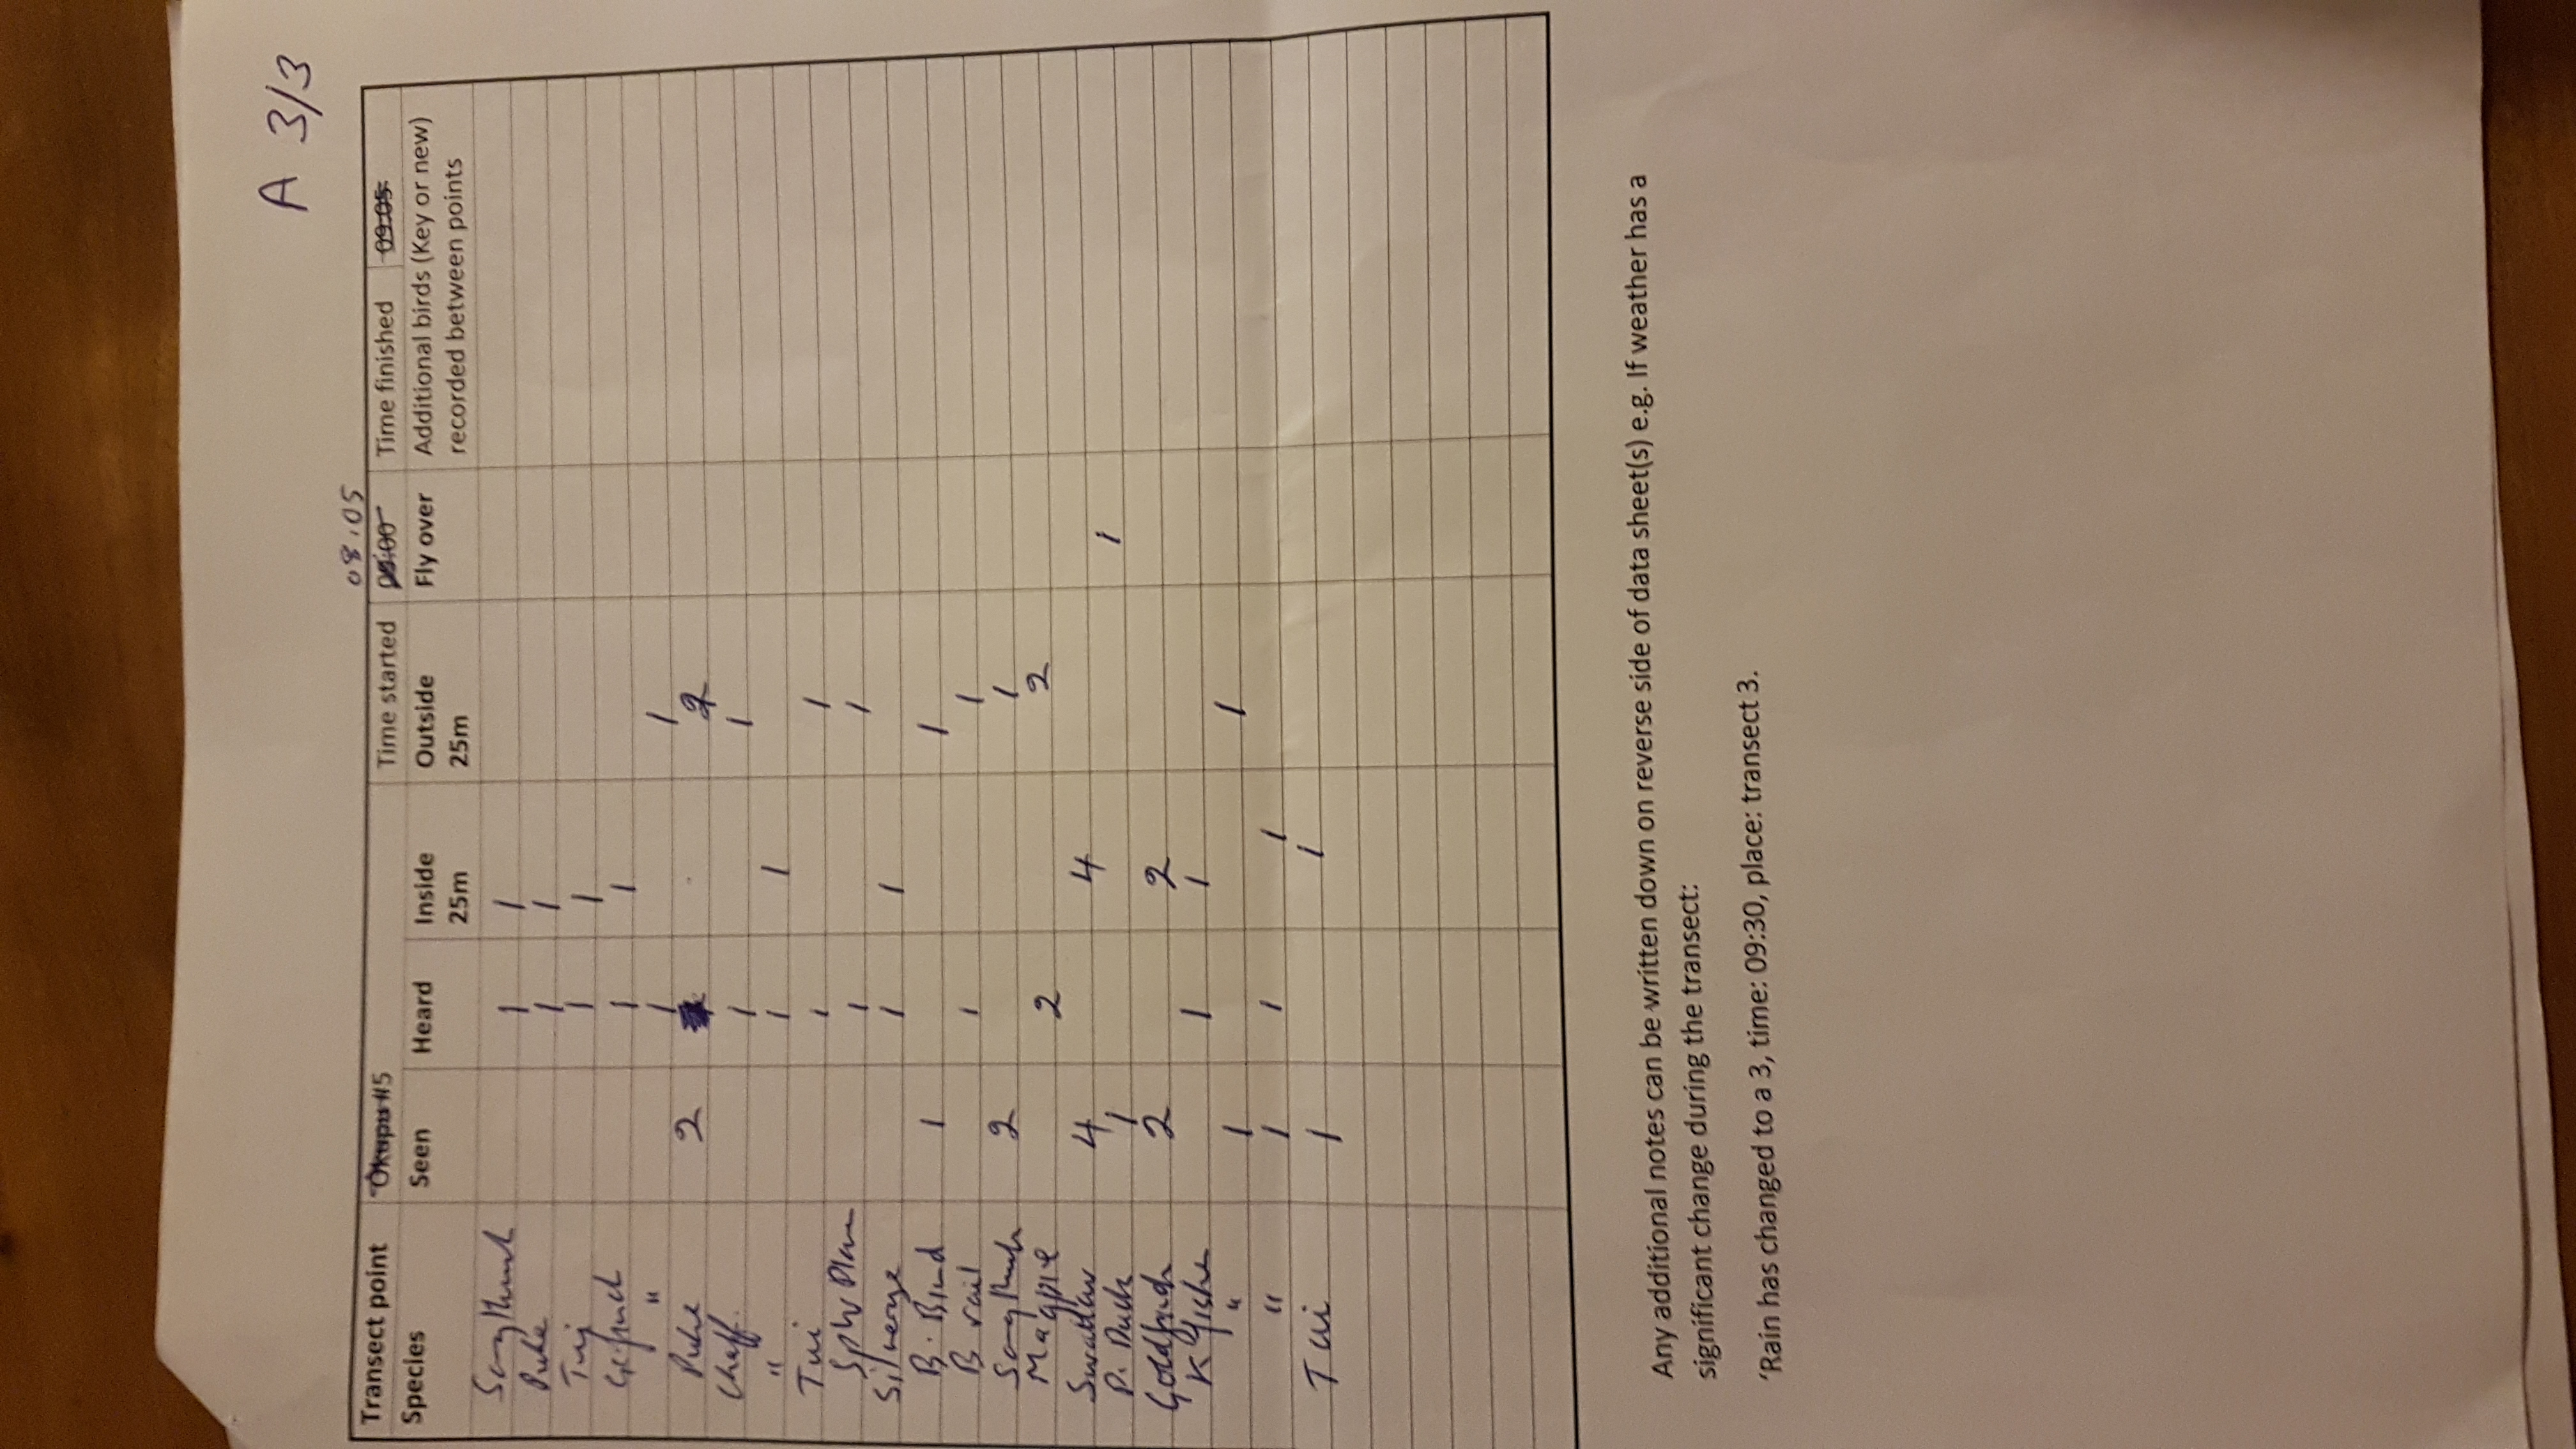 A 3/3
08:05
Transect point Okupu #5 Time started 09:00 Time finished 09:05
Species Seen Heard Inside 25m Outside 25m Fly over Additional birds (Key or new) recorded between points
1 1
Puke 1 1
Tui 1 1
1 1
" 1 1
Puke 2 2
Chaff. 1 1
" 1 1
Tui 1 1
1 1
Silvereye 1 1
B. Bird 1 1
B rail 1 1
2 1
Magpie 2 2
Swallow 4 4
P. Duck 1 1
Goldfinch 2 2
K fisher 1 1
" 1 1
" 1 1 1
Tui 1 1
Any additional notes can be written down on reverse side of data sheet(s) e.g. If weather has a
significant change during the transect:
‘Rain has changed to a 3, time: 09:30, place: transect 3.